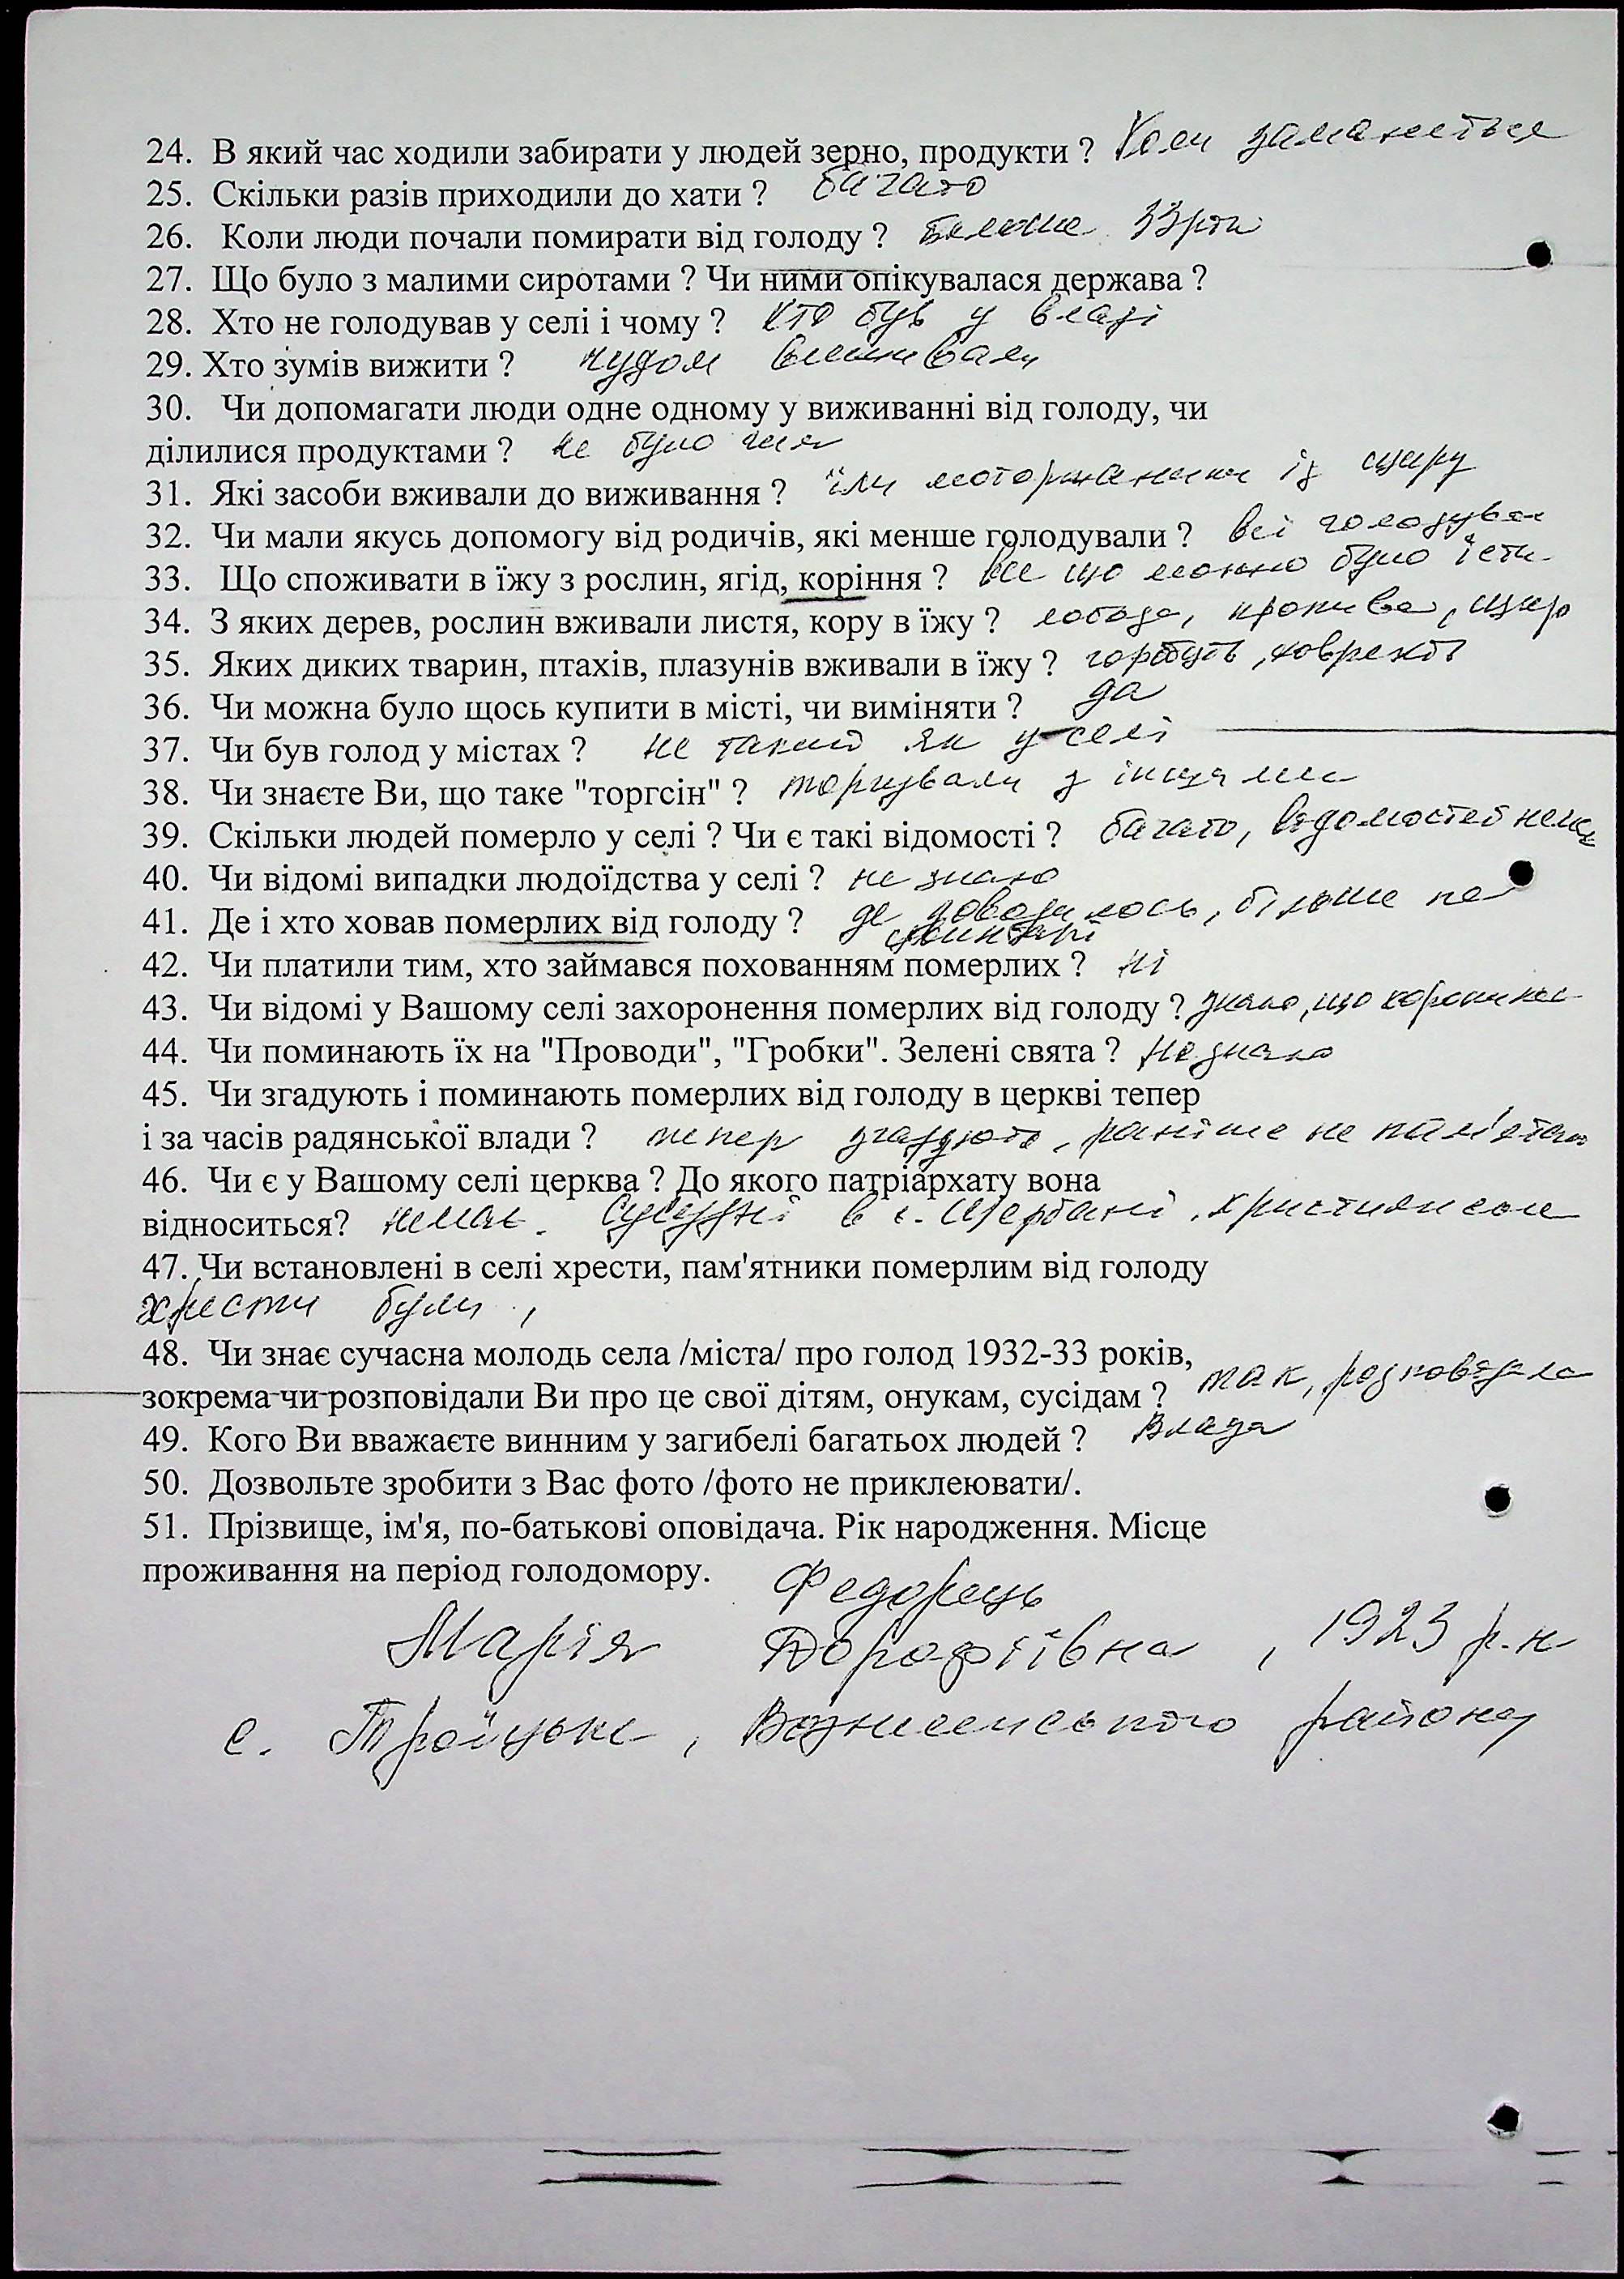 24. В який час ходили забирати у людей зерно, продукти ? Коли заманеться
25. Скільки разів приходили до хати ? багато
26. Коли люди почали помирати від голоду ? Більше 33рік
27. Що було з малими сиротами ? Чи ними опікувалася держава ?
28. Хто не голодував у селі і чому ? кто був у владі
29. Хто зумів вижити ? чудом виживали
30. Чи допомагати люди одне одному у виживанні від голоду, чи
ділилися продуктами ? не було чим
31. Які засоби вживали до виживання ? їли моторжаники із щиру
32. Чи мали якусь допомогу від родичів, які менше голодували ? всі голодували
33. Що споживати в їжу з рослин, ягід, коріння ? все що можно було їсти
34. З яких дерев, рослин вживали листя, кору в їжу ? лобода, кропива, щир
35. Яких диких тварин, птахів, плазунів вживали в їжу ? горобців, ховрахів
36. Чи можна було щось купити в місті, чи виміняти ? да
37. Чи був голод у містах ? не такий як у селі
38. Чи знаєте Ви, що таке "торгсін" ? торгували з іншими
39. Скільки людей померло у селі ? Чи є такі відомості ? багато, відомостей нема
40. Чи відомі випадки людоїдства у селі ? не знаю
41. Де і хто ховав померлих від голоду ? де доводилось, більше на
цвинтарі
42. Чи платили тим, хто займався похованням померлих ? ні
43. Чи відомі у Вашому селі захоронення померлих від голоду ? знаю, що хоронили
44. Чи поминають їх на "Проводи", "Гробки". Зелені свята ? Не знаю
45. Чи згадують і поминають померлих від голоду в церкві тепер
і за часів радянської влади ? тепер згадують, раніше не пам'ятаю
46. Чи є у Вашому селі церква ? До якого патріархату вона
відноситься? немає. Сусідні в с. Щербані, християнська
47. Чи встановлені в селі хрести, пам'ятники померлим від голоду
хрести були,
48. Чи знає сучасна молодь села /міста/ про голод 1932-33 років,
зокрема чи розповідали Ви про це свої дітям, онукам, сусідам ? так, розповідала
49. Кого Ви вважаєте винним у загибелі багатьох людей ? Влада
50. Дозвольте зробити з Вас фото /фото не приклеювати/.
51. Прізвище, ім'я, по-батькові оповідача. Рік народження. Місце
проживання на період голодомору. Федорець
Марія Дорофіївна, 1923 р.н
с. Троїцьке, Вознисенського району